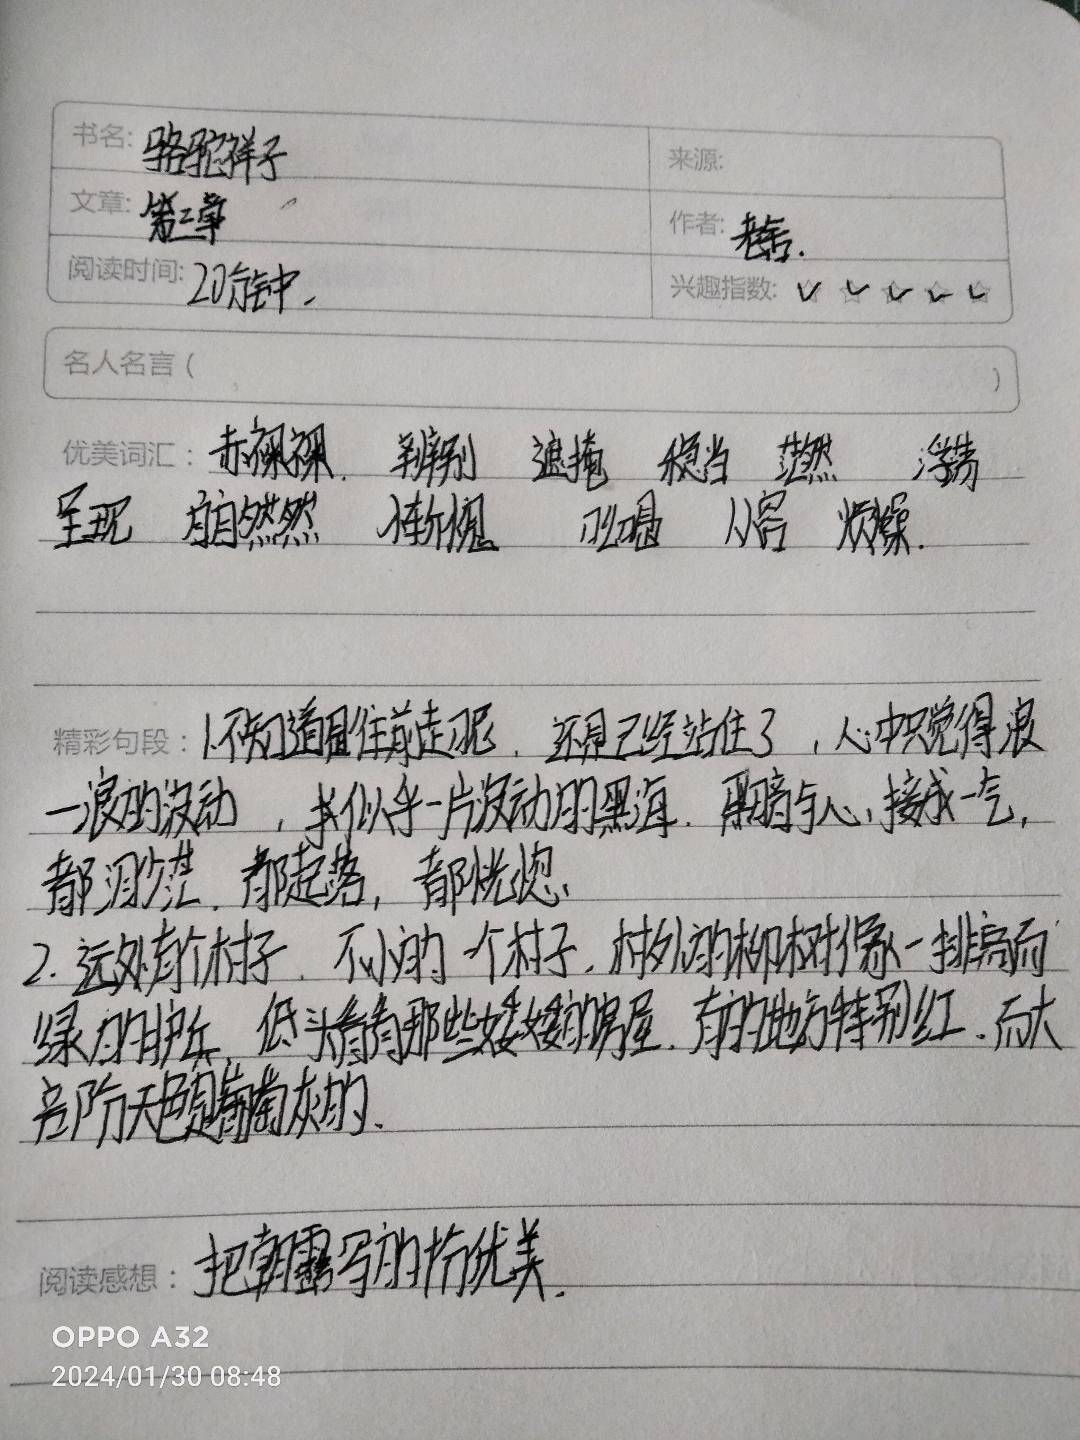 书名: 骆驼祥子
来源:
文章: 第三章
作者: 老舍.
阅读时间: 20分钟.
兴趣指数:
名人名言 ( )
优美词汇: 赤裸裸. 辨别 遮掩 稳当 茫然
呈现 自自然然 惭愧 从容 烦燥.
精彩句段: 1.不知道是往前走呢, 还是已经站住了, 心中只觉得浪
一浪的波动, 似乎一片波动的黑海. 黑暗与心接成一气,
都渺茫. 都起落, 都恍惚.
2. 远处有个村子. 不小的一个村子. 村外的柳树像一排高而
绿的护兵. 低头看看那些矮矮的房屋. 有的地方特别红. 而大
部分天色是葡萄灰的.
阅读感想: 把朝霞写的十分优美.
OPPO A32
2024/01/30 08:48